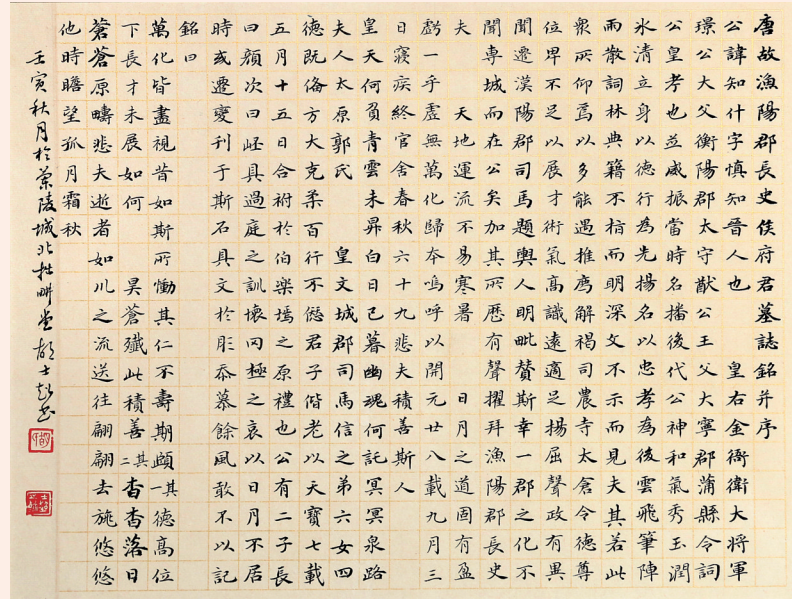 唐故漁陽郡長史侯府君墓誌銘并序
公諱知什字慎知晉人也　皇右金衙衛大將軍
璟公大父衡陽郡太守猷公王父大寧郡蒲縣令詞
公皇考也並威振當時名播後代公神和氣秀玉潤
氷清立身以德行為先揚名以忠孝為後雲飛筆陣
而散詞林典籍不指而明深文不示而見夫其若此
衆所仰焉以多能遇推廌解褐司農寺太倉令德尊
位卑不足以展才術氣高識遠適足揚屈聲政有異
聞遷漢陽郡司馬題輿人明毗贊斯幸一郡之化不
聞專城而在公矣加其所歷有聲擢拜漁陽郡長史
夫　天地運流不易寒暑　日月之道固有盈
虧一乎虛無萬化歸本嗚呼以開元廿八載九月三
日寢疾終官舍春秋六十九悲夫積善斯人
皇天何負青雲未昇白日已暮幽魂何託冥冥泉路
夫人太原郭氏　皇文城郡司馬信之弟六女四
德既俻方大克柔百行不僽君子偕老以天寶七載
五月十五日合祔於伯樂塢之原禮也公有二子長
曰顔次曰岯具過庭之訓壞冈極之哀以日月不居
時或遷變刊于斯石具文於彤忝慕餘風敢不以記
銘曰
萬化皆盡視昔如斯所慟其仁不壽期頤其一德高位
下長才未展如何　昊蒼殲此積善其二杳杳落日
蒼蒼原疇悲夫逝者如川之流送往翩翩去旐悠悠
他時瞻望孤月霜秋
壬寅秋月於蘭陵城北拙畊堂胡士書